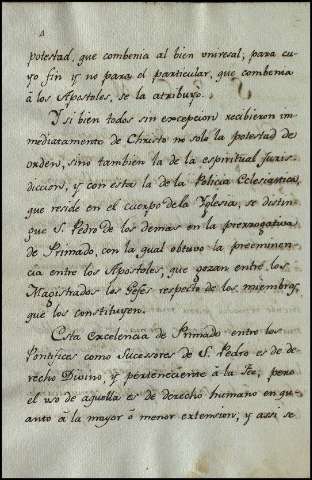 potestad, que combenia al bien uniresal; para cu-
yo fin y no para el particular, que combenia
à los Apostoles, se la atribuyo.
Y si bien todos sin excepcion recibieron im-
mediatamente de Christo no solo la potestad de
orden, sino tambien la de la espiritual juris-
diccion, y con esta la de la Policia Eclesiastica,
que reside en el cuerpo de la Yglesia, se distin-
gue S. Pedro de los demas en la prerrogativa
de Primado, con la qual obtuvo la preeminen-
cia entre los Apostoles, que gozan entre los
Magistrados los Gefes respecto de los miembros,
que los constituyen.
Esta excelencia de Primado entre los
Pontifices como Sucesores de S. Pedro es de de-
recho Divino, y perteneciente à la Fee, pero
el uso de aquella es de derecho humano en qu-
anto à la mayor ò menor extension; y assi se